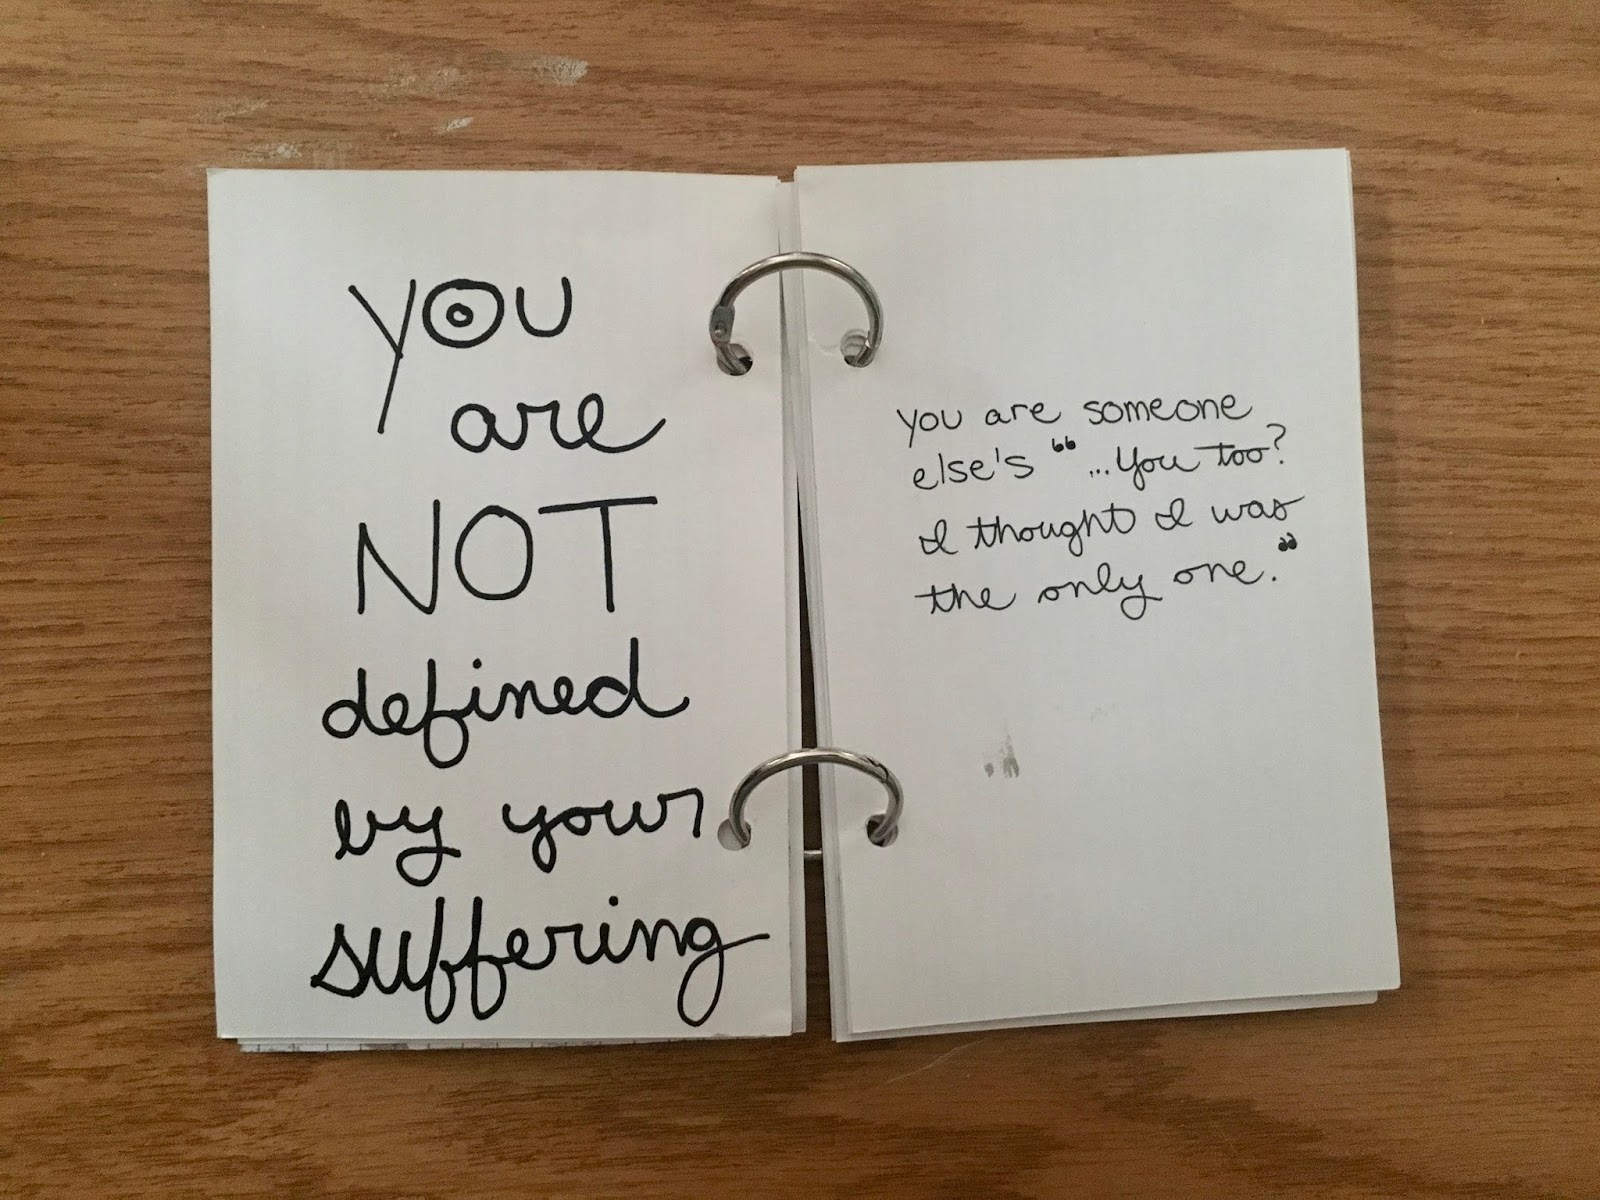 YOU
are
NOT
defined
by your
suffering
you are someone
else's "...You too?
I thought I was
the only one."